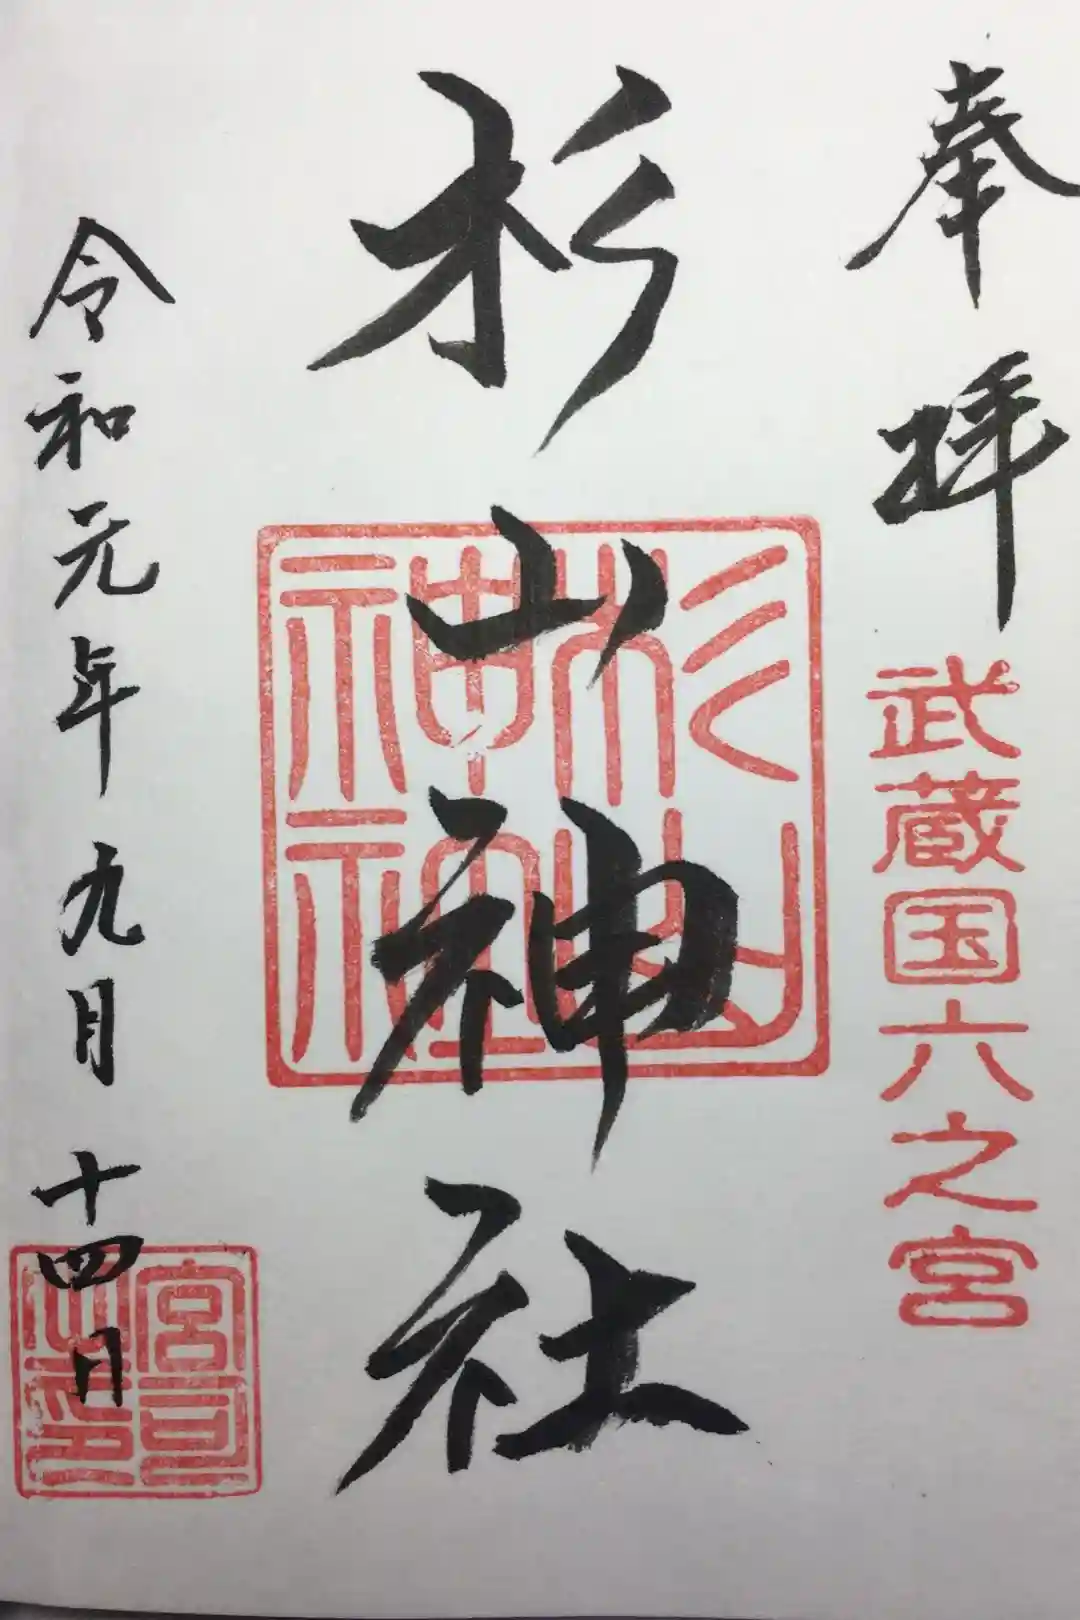 奉拝
武蔵国六之宮
杉山神社
杉山
神社
令和元年九月十四日
宮司
之印